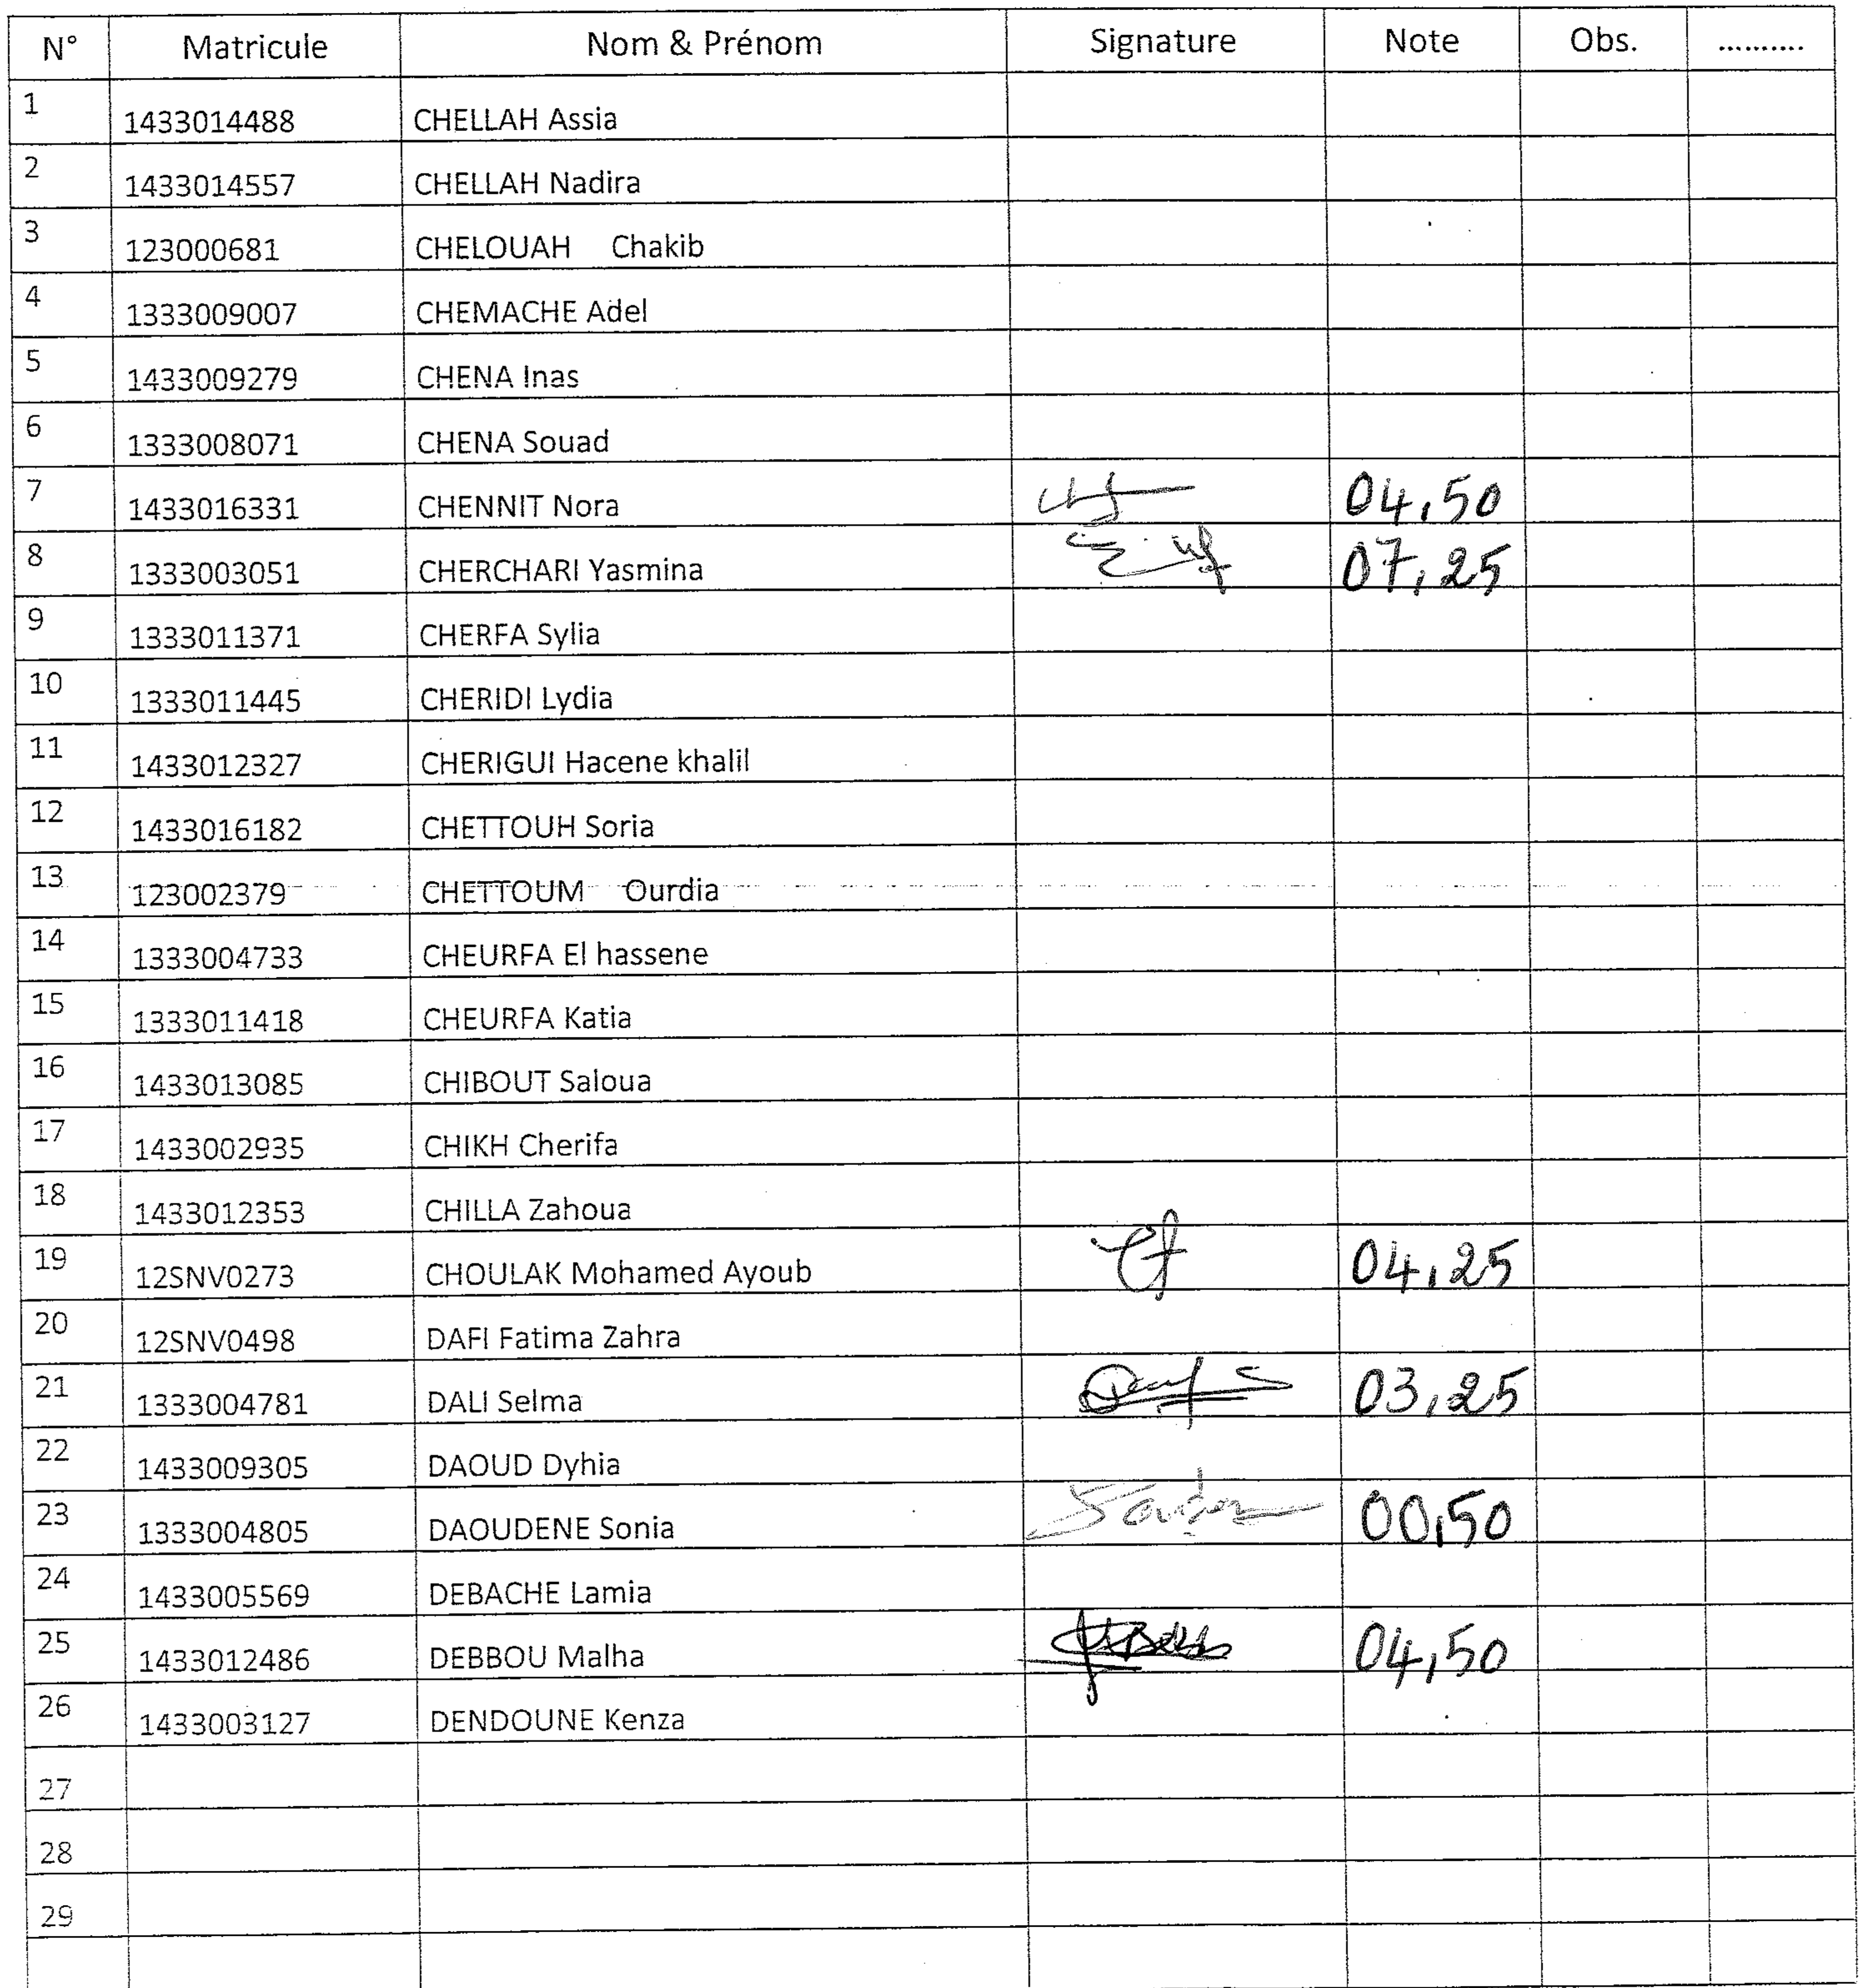 N° Matricule Nom & Prénom Signature Note Obs. ..........
1 1433014488 CHELLAH Assia
2 1433014557 CHELLAH Nadira
3 123000681 CHELOUAH Chakib
4 1333009007 CHEMACHE Adel
5 1433009279 CHENA Inas
6 1333008071 CHENA Souad
7 1433016331 CHENNIT Nora 04,50
8 1333003051 CHERCHARI Yasmina 07,25
9 1333011371 CHERFA Sylia
10 1333011445 CHERIDI Lydia
11 1433012327 CHERIGUI Hacene khalil
12 1433016182 CHETTOUH Soria
13 123002379 CHETTOUM Ourdia
14 1333004733 CHEURFA El hassene
15 1333011418 CHEURFA Katia
16 1433013085 CHIBOUT Saloua
17 1433002935 CHIKH Cherifa
18 1433012353 CHILLA Zahoua
19 12SNV0273 CHOULAK Mohamed Ayoub 04,25
20 12SNV0498 DAFI Fatima Zahra
21 1333004781 DALI Selma 03,25
22 1433009305 DAOUD Dyhia
23 1333004805 DAOUDENE Sonia 00,50
24 1433005569 DEBACHE Lamia
25 1433012486 DEBBOU Malha 04,50
26 1433003127 DENDOUNE Kenza
27
28
29